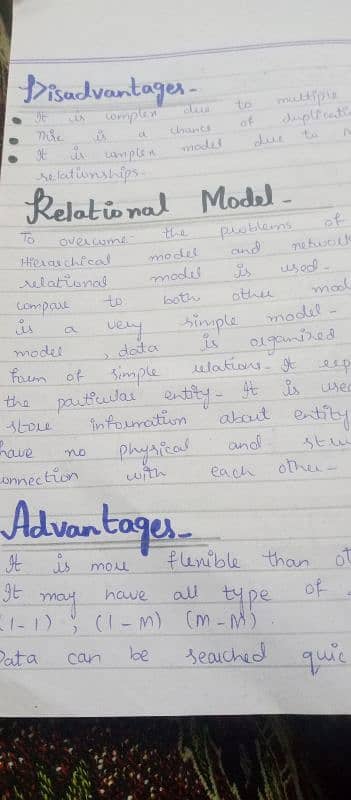 Disadvantages-
It is complex due to multiple
There is a chance of
It is complex model due to
relationships-
Relational Model-
To overcome the problems of
Hierarchical model and network
relational model is used-
compare to both other
is a very simple model-
model , data is organized
form of simple relations- It
the particular entity- It is used
store information about entity
have no physical and
connection with each other-
Advantages-
It is more flexible than
It may have all type of
(1-1) , (1-M) (M-M).
Data can be searched